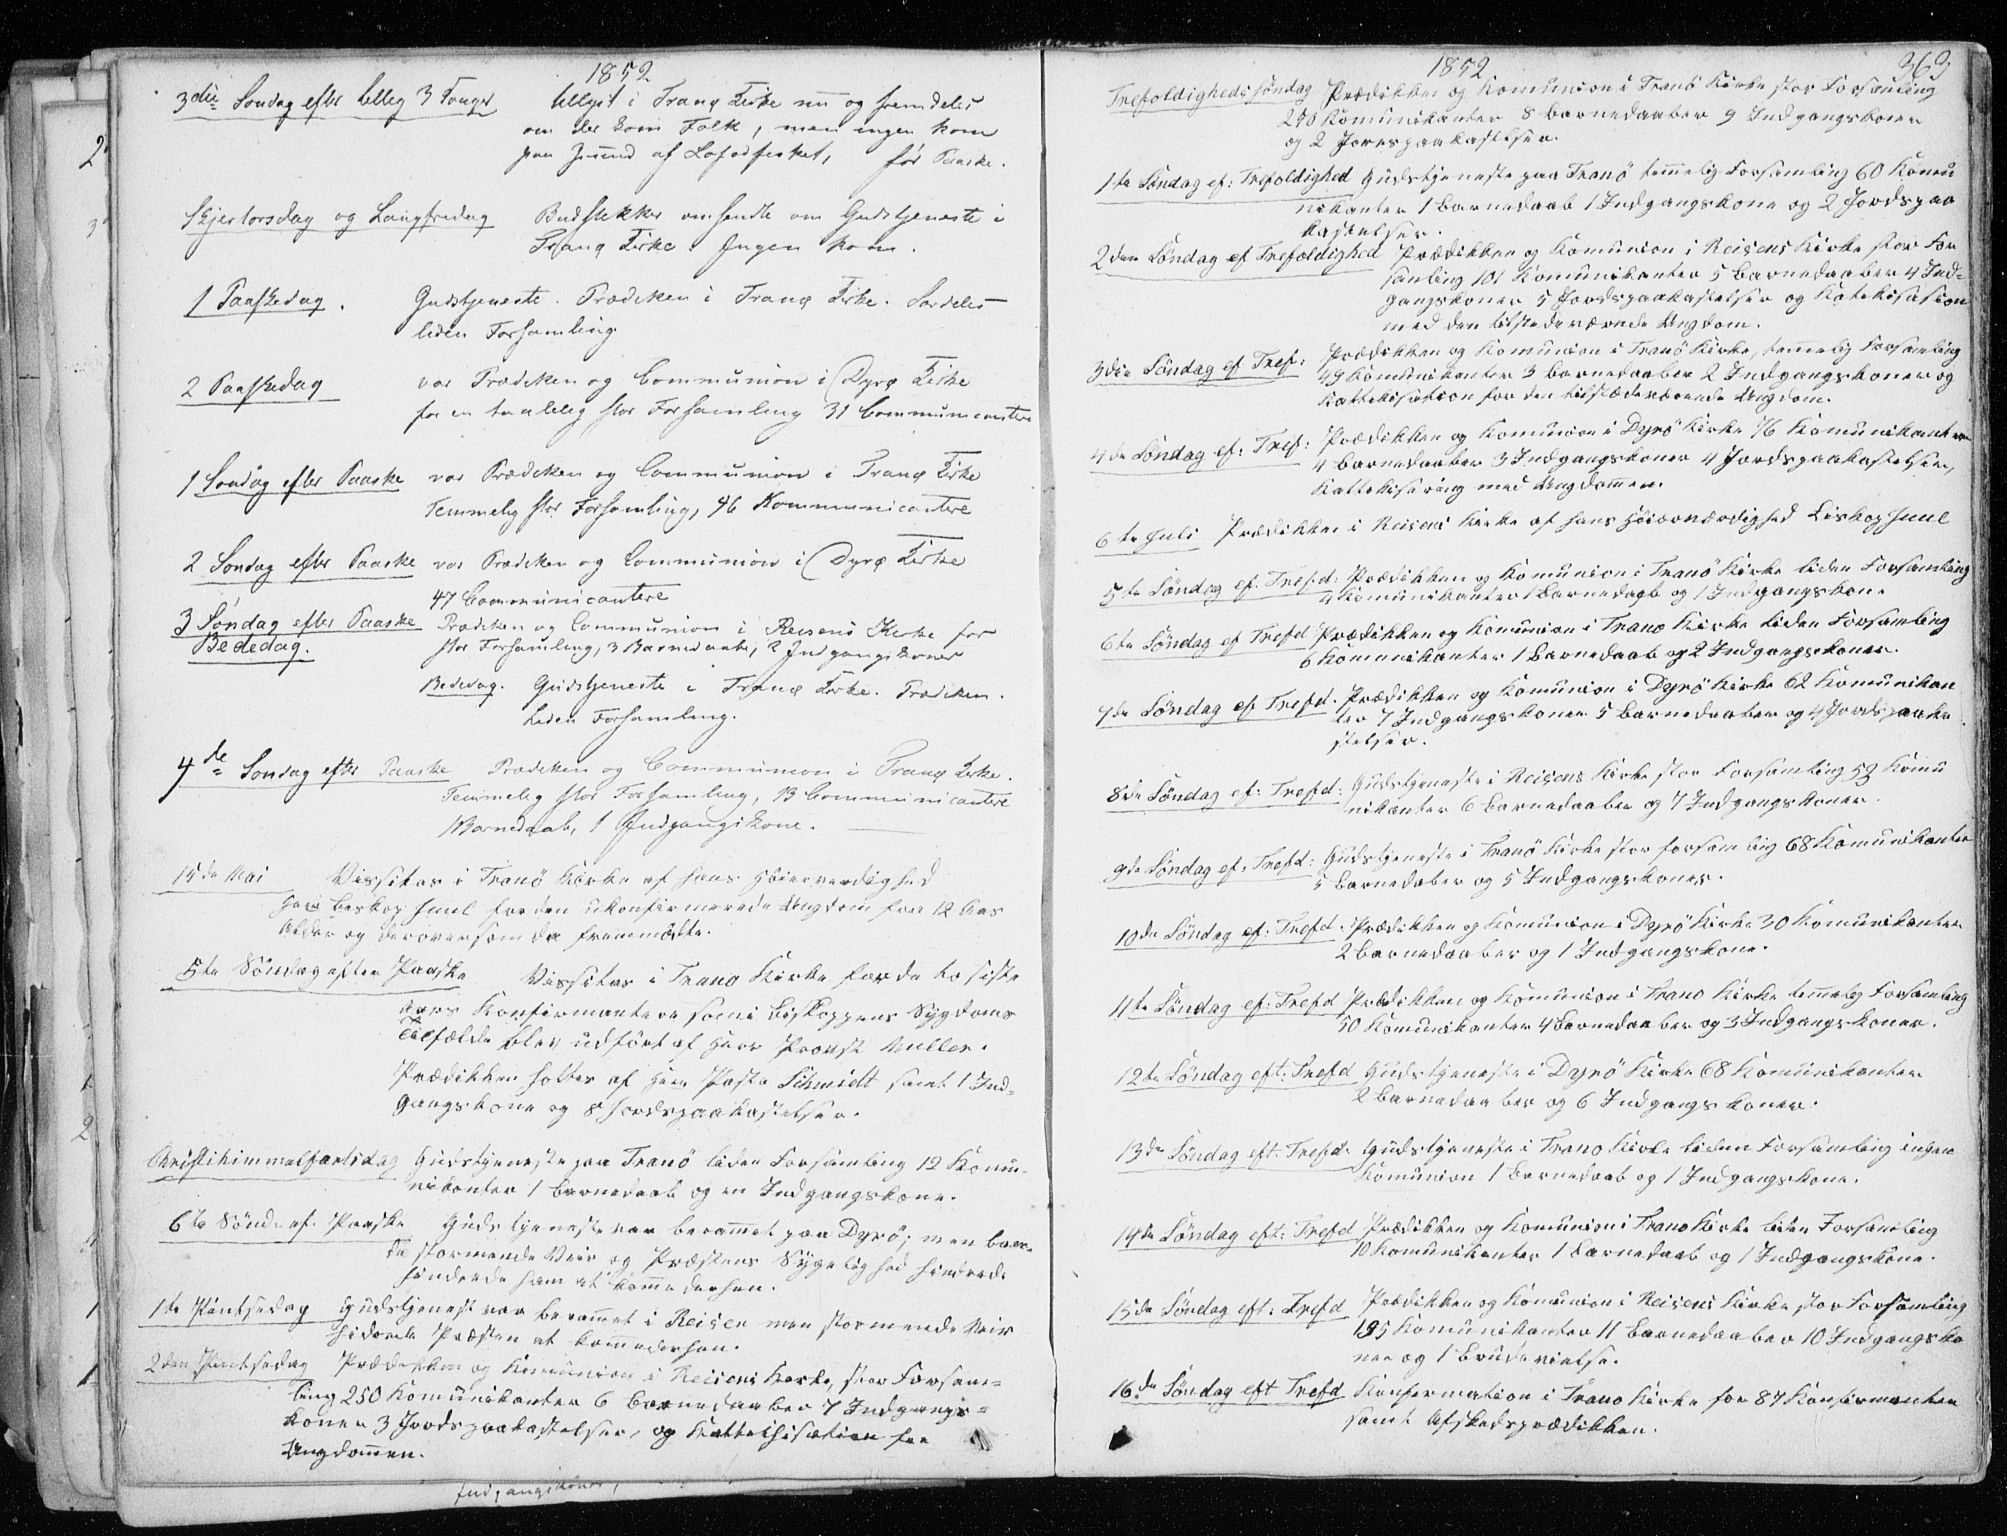 1852
3die Søndag efter hellig 3 Konger tillyst i Tranø Kirke nu og fremdeles
om der kom Folk, men ingen kom
paa Grund af Lofodfisket, før Paaske.
Skjertorsdag og Langfredag Budstikker omsendte om Gudstjeneste i
Tranø Kirke. Ingen kom.
1 Paaskedag. Gudstjeneste. Prædiken i Tranø Kirke. Særdeles
liden Forsamling
2 Paaskedag var Prædiken og Communion i Dyrø Kirke
for en taalelig stor Forsamling 31 Communicantere
1 Søndag efter Paaske var Prædiken og Communion i Tranø Kirke
Temmelig stor Forsamling, 46 Kommunicantere
2 Søndag efter Paaske var Prædiken og Communion i Dyrø Kirke
47 Communicantere
3 Søndag efter Paaske Prædiken og Communion i Reisens Kirke for
stor Forsamling, 3 Barnedaab, 2 Indgangskoner
Bededag.
Bededag. Gudstjeneste i Tranø Kirke. Prædiken.
Liden Forsamling.
4de Søndag efter Paaske Prædiken og Communion i Tranø Kirke.
Temmelig stor Forsamling, 13 Communicantere
1 Barnedaab, 1 Indgangskone.
15de Mai Vissitas i Tranö Kirke af Hans Höiærverdighed
Herr Biskop Juul for den ukonfirmerede Ungdom fra 12 Aars
Alder og derover som da fremmödte.
5te Söndag efter Paaske Vissitas i Trano Kirke for de to siste
Aars Konfirmantere som i Biskoppens Sygdoms
Tilfælde blev udfört af Herr Provst Müller.
Prædikken holtes af Herr Pastor Schmidt samt 1 Ind-
gangskone og 8 Jordspaakastelser.
Christihimmelfartsdag Gudstjeneste paa Tranö liden Forsamling 12 Komu-
nikanter 1 Barnedaab og en Indgangskone.
6te Sönd. ef. Paaske Gudstjeneste var beramet paa Dyrö; men baa-
de stormende Veir og Præstens Sygelighed hindrede
hindrede ham at komme derhen.
1te Pintsedag Gudstjenest var beramet i Reisen men stormende Veir
hidrede Præsten at komme derhen.
2den Pintsedag Prædikken og Komunion i Reisens Kirke, stor Forsam-
ling 250 Komunikanter 6 Barnedaaber 7 Indgangs-
koner 3 Jordspaakastelser, og Kattekisation for
Ungdommen.
Indgangskoner,
1852
363
Trefoldighedssöndag Prædikken og Komunion i Tranö Kirke stor Forsamling
Komunikanter 8 Barnedaaber 9 Indgangskoner
og 2 Jorespaakastelser.
1te Söndag ef: Trefoldighed Gudstjeneste paa Tranö temelig Forsamling 60 Komu
nikanter 1 Barnedaab 1 Indgangskone og 2 Jordspaa
kastelser.
2den Söndag ef Trefoldighed Prædikken og Komunion i Reisens Kirke stor For
samling 101 Komunikanter 5 Barnedaaber 4 Ind-
gangskoner 5 Jordspaakastelser og Katekisasion
med den tilstedeværende Ungdom.
3die Söndag ef Tref: Prædikken og Komunion i Tranö Kirke, temelig Forsamling
49 Komunikanter 3 Barnedaaber 2 Indgangskoner og
Kattekisation for den tilstædeværende Ungdom.
4de Söndag ef: Tref: Prædikken og Komunion i Dyrö Kirke 76 Komunikanter
4 Barnedaaber 3 Indgangskoner 4 Jordspaakastelser,
Kattekisering med Ungdommen.
6te Juli Prædikken i Reisens Kirke af Hans Höiærværdighed Biskop Juul
5te Söndag ef. Trefd: Prædikken og Komunion i Tranö Kirke liden Forsamling
4 Komunikanter 1 Barnedaab og 1 Indgangskone
6te Söndag ef Trefd Prædikken og Komunion i Trano Kirke liden Forsamling
6 Komunikanter 1 Barnedaab og 2 Indgangskoner.
7de Söndag ef Trefd. Prædikken og Komunion i Dyrö Kirke 62 Komunikan
ter 7 Indgangskoner 5 Barnedaaber og 4 Jordspaaka
stelser.
8de Söndag ef: Trefd: Gudstjeneste i Reisens Kirke stor Forsamling 52 Komu
nikanter 6 Barnedaaber og 7 Indgangskoner.
9de Söndag ef: Trefd: Gudstjeneste i Tranö Kirke stor forsamling 68 Komunikanter
5 Barnedaber og 5 Indgangskoner.
10de Söndag ef: Trefd. Prædikken og Komunion i Dyrö Kirke 30 Komunikanter
2 Barnedaaber og 1 Indgangskone.
11te Söndag ef: Trefd Prædikken og Komunion i Trano Kirke temelig Forsamling
50 Komunikanter 4 Barnedaaber og 3 Indgangskoner.
12te Söndag eft: Trefd Gudstjeneste i Dyrö Kirke 68 Komunikanter
2 Barnedaaber og 6 Indgangskoner.
13de Söndag eft. Trefd. Gudstjeneste i Trano Kirke liden Forsamling ingen
Komunion 1 Barnedaab og 1 Indgangskone.
14de Söndag eft: Trefd Prædikken og Komunion i Trano Kirke liden Forsamling
10 Komunikanter 1 Barnedaab og 1 Indgangskone.
15de Söndag eft: Trefd Prædikken og Komunion i Reisens Kirke stor Forsamling
195 Komunikanter 11 Barnedaaber 10 Indgangsko
ner og 1 Brudevielse.
16de Söndag eft Trefd Konfermation i Trano Kirke for 87 Konfirmanter
samt Afskedsprædikken.